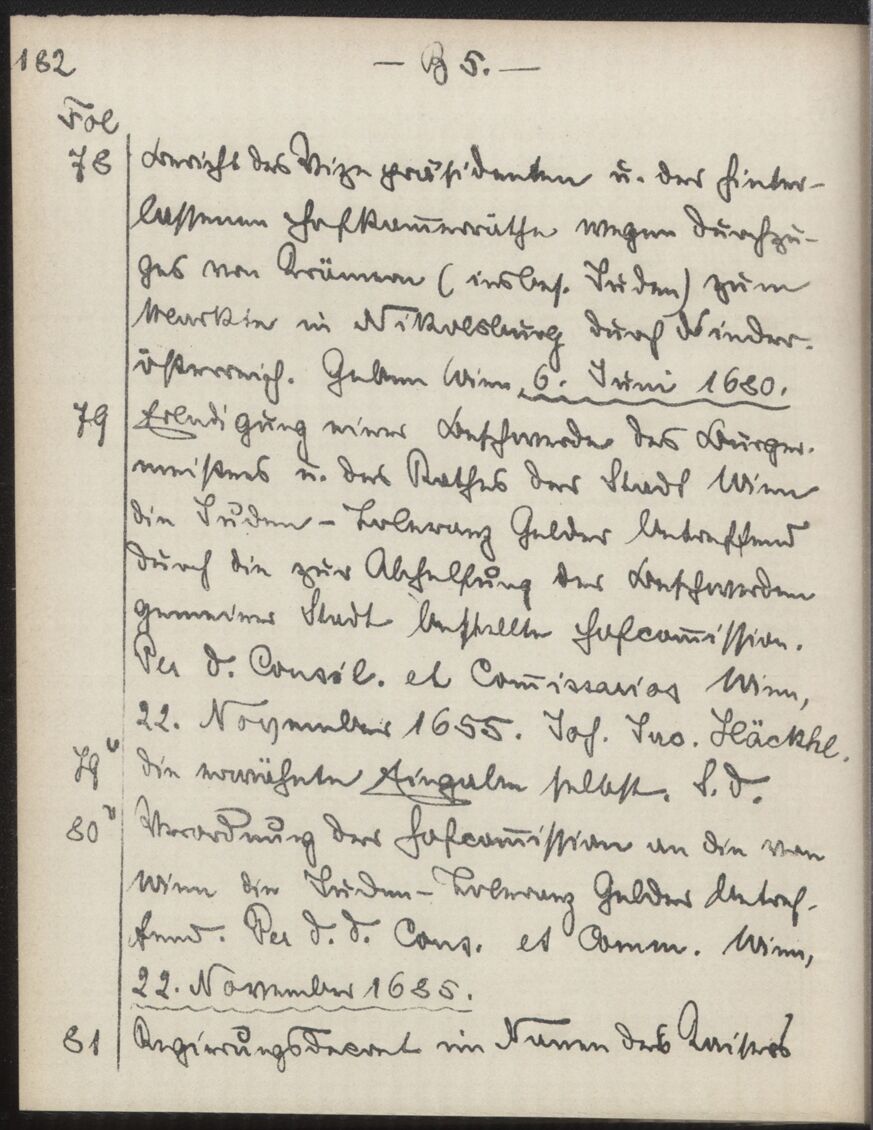 182 — B 5. —
Fol
78 Bericht des Vizepräsidenten u. der hinter-
lassenen Hofkam̅erräthe wegen Durchzu-
ges von Krämern (insbes. Juden) zum
Markte in Nikolsburg durch Nieder-
österreich. Geben Wien, 6. Juni 1680.
79 Erledigung einer Beschwerde des Bürger-
meisters u. des Rathes der Stadt Wien
die Juden-Toleranz Gelder betreffend
durch die zur Abhelfung der Beschwerden
gemeiner Stadt bestellte Hofcom̅ission.
Per d. Consil. et Com̅issarios Wien,
22. November 1655. Joh. Jac. Häckhl.
79v die erwähnte Eingabe selbst. S. d.
80v Verordnung der Hofcom̅ission an die von
Wien die Juden-Toleranz Gelder betref-
fend. Per d. d. Cons. et Comm. Wien,
22. November 1685.
81 Regierungsdecret im Namen des Kaisers